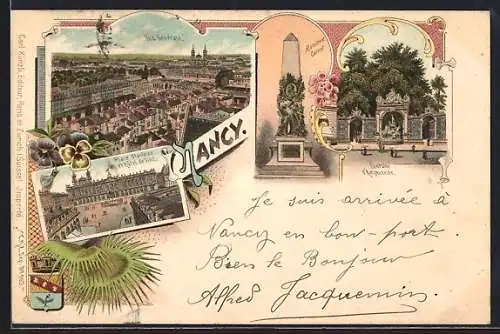 Vue Générale.
Monument Carnot
NANCY.
Place Stanislas et Hôtel de Ville.
Fontaine d'Amphitrite.
Carl Künzli, Editeur, Paris et Zurich (Suisse)
Je suis arrivée à
Nancy en bon-port.
Bien le Bonjour
Alfred Jacquemin.